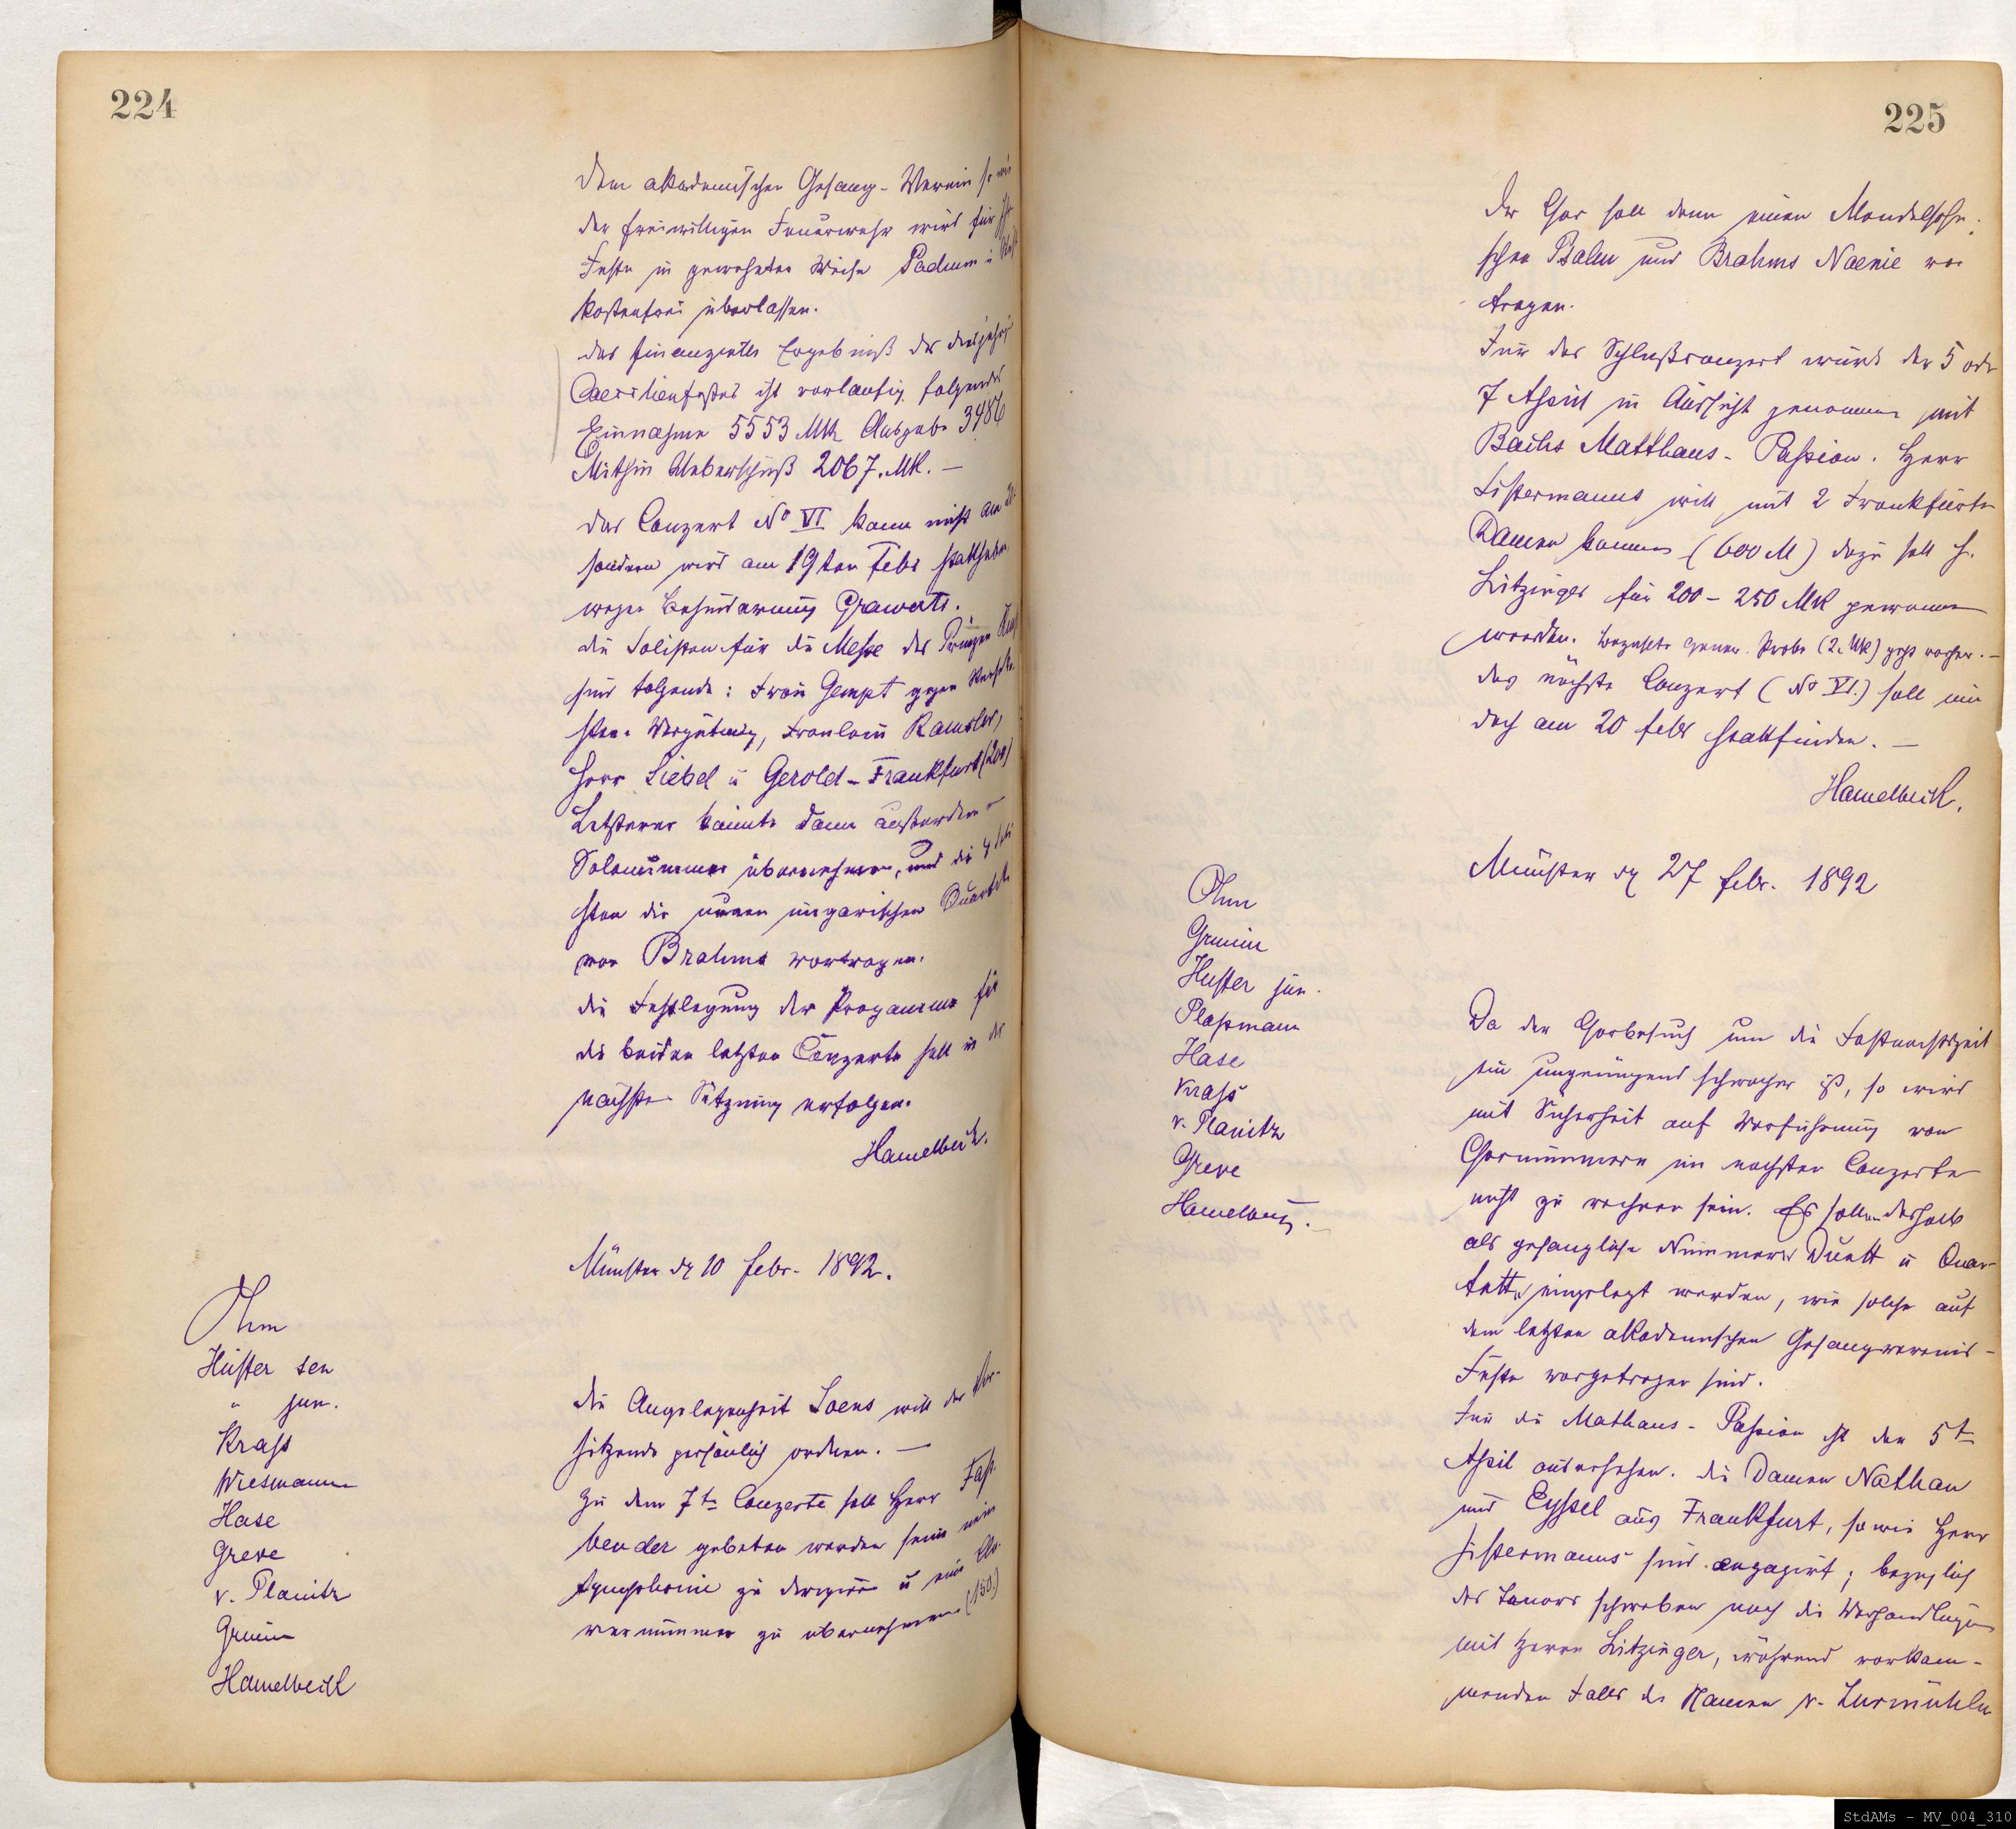 224
Dem akademischen Gesang-Verein so wie
der freiwilligen Feuerwehr wird für ihr
Feste in gewohnter Weise Podium u
kostenfrei überlassen.
das finanzielle Ergebniß des diesjähri
Caecilienfestes ist vorlaufig folgendes
Einnahme 5553 Mk Ausgabe 3486
Mithin Ueberschuß 2067. Mk. —
das Conzert No VI kann nicht am
sondern wird am 19ten Febr stattfinden
wegen Behinderung Grawerts.
die Solisten für die Messe des Prinzen
sind folgende: Frau Gempt gegen
Vergütung, Fraulein Ramsler,
Herr Liebel u Gerold-Frankfurt (200)
Letzterer könnte dann außerdem
Solonummer übernehmen, und die 4 Soli
sten die neuen ungarischen Quartette
von Brahms vortragen.
die Festlegung der Programme für
die beiden letzten Conzerte soll in der
nächsten Sitzung erfolgen.
Hamelbeck.
Münster d 10 Febr. 1892.
Ohm
Hüffer sen
" jun.
Krass
Wiesmann
Hase
Greve
v. Planitz
Grimm
Hamelbeck
die Angelegenheit Loens will der Vor-
sitzende persönlich ordnen. —
Zu dem 7t Conzerte soll Herr Fass-
bender gebeten werden seine neue
Symphonie zu dirigiren u eine Cla-
viernummer zu übernehmen (150.)
225
Der Chor soll dann einen Mendelsohn-
schen Psalm und Brahms Naenie vor
tragen.
Für das Schlußconzert wurde der 5 oder
7 April in Aussicht genommen mit
Bachs Matthäus-Passion. Herr
Sistermanns will mit 2 Frankfurter
Damen kommen (600 M) dazu soll H.
Litzinger für 200-250 Mk gewonnen
werden. bezahlte Gener. Probe (2. Mk) geht vorher. —
das nächste Conzert (No VI.) soll nun
doch am 20 Febr stattfinden. —
Hamelbeck.
Münster d 27 Febr. 1892
Ohm
Grimm
Hüffer jun.
Plaßmann
Hase
Krass
v. Planitz
Greve
Hamelbeck.
Da der Chorbesuch um die Fastnachtszeit
ein ungenügend schwacher ist, so wird
mit Sicherheit auf Vorführung von
Chornummern im nächsten Conzerte
nicht zu rechnen sein. Es sollen deshalb
als gesangliche Nummern Duett u Quar-
tette eingelegt werden, wie solche auf
dem letzten akademischen Gesangvereins-
Feste vorgetragen sind.
Für die Mathaus-Passion ist der 5t
April ausersehen. die Damen Nathan
und Eyssel aus Frankfurt, sowie Herr
Sistermanns sind engagirt; bezüglich
des Tenors schweben noch die Verhandlungen
mit Herrn Litzinger, während vorkom-
menden Falls die Namen v. Zurmühlen
StdAMs - MV_004_310